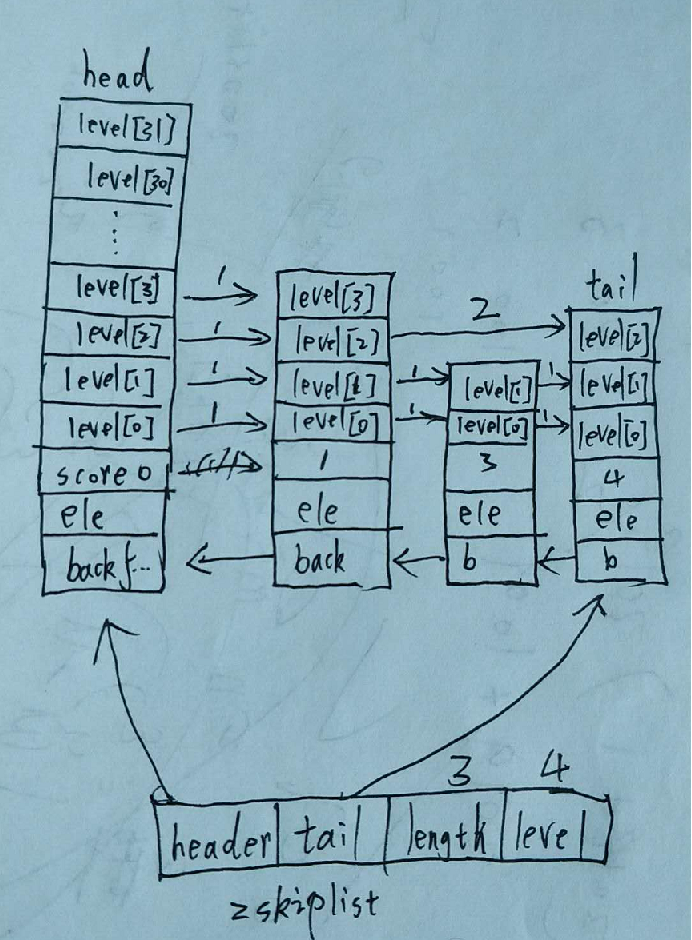 head
level[31]
level[30]
level[3] 1 level[3]
tail
level[2] 1 level[2] 2 level[2]
level[1] 1 level[1] 1 level[1] 1 level[1]
level[0] 1 level[0] 1 level[0] 1 level[0]
score 0 1 3 4
ele ele ele ele
back back b b
3 4
header tail length level
zskiplist